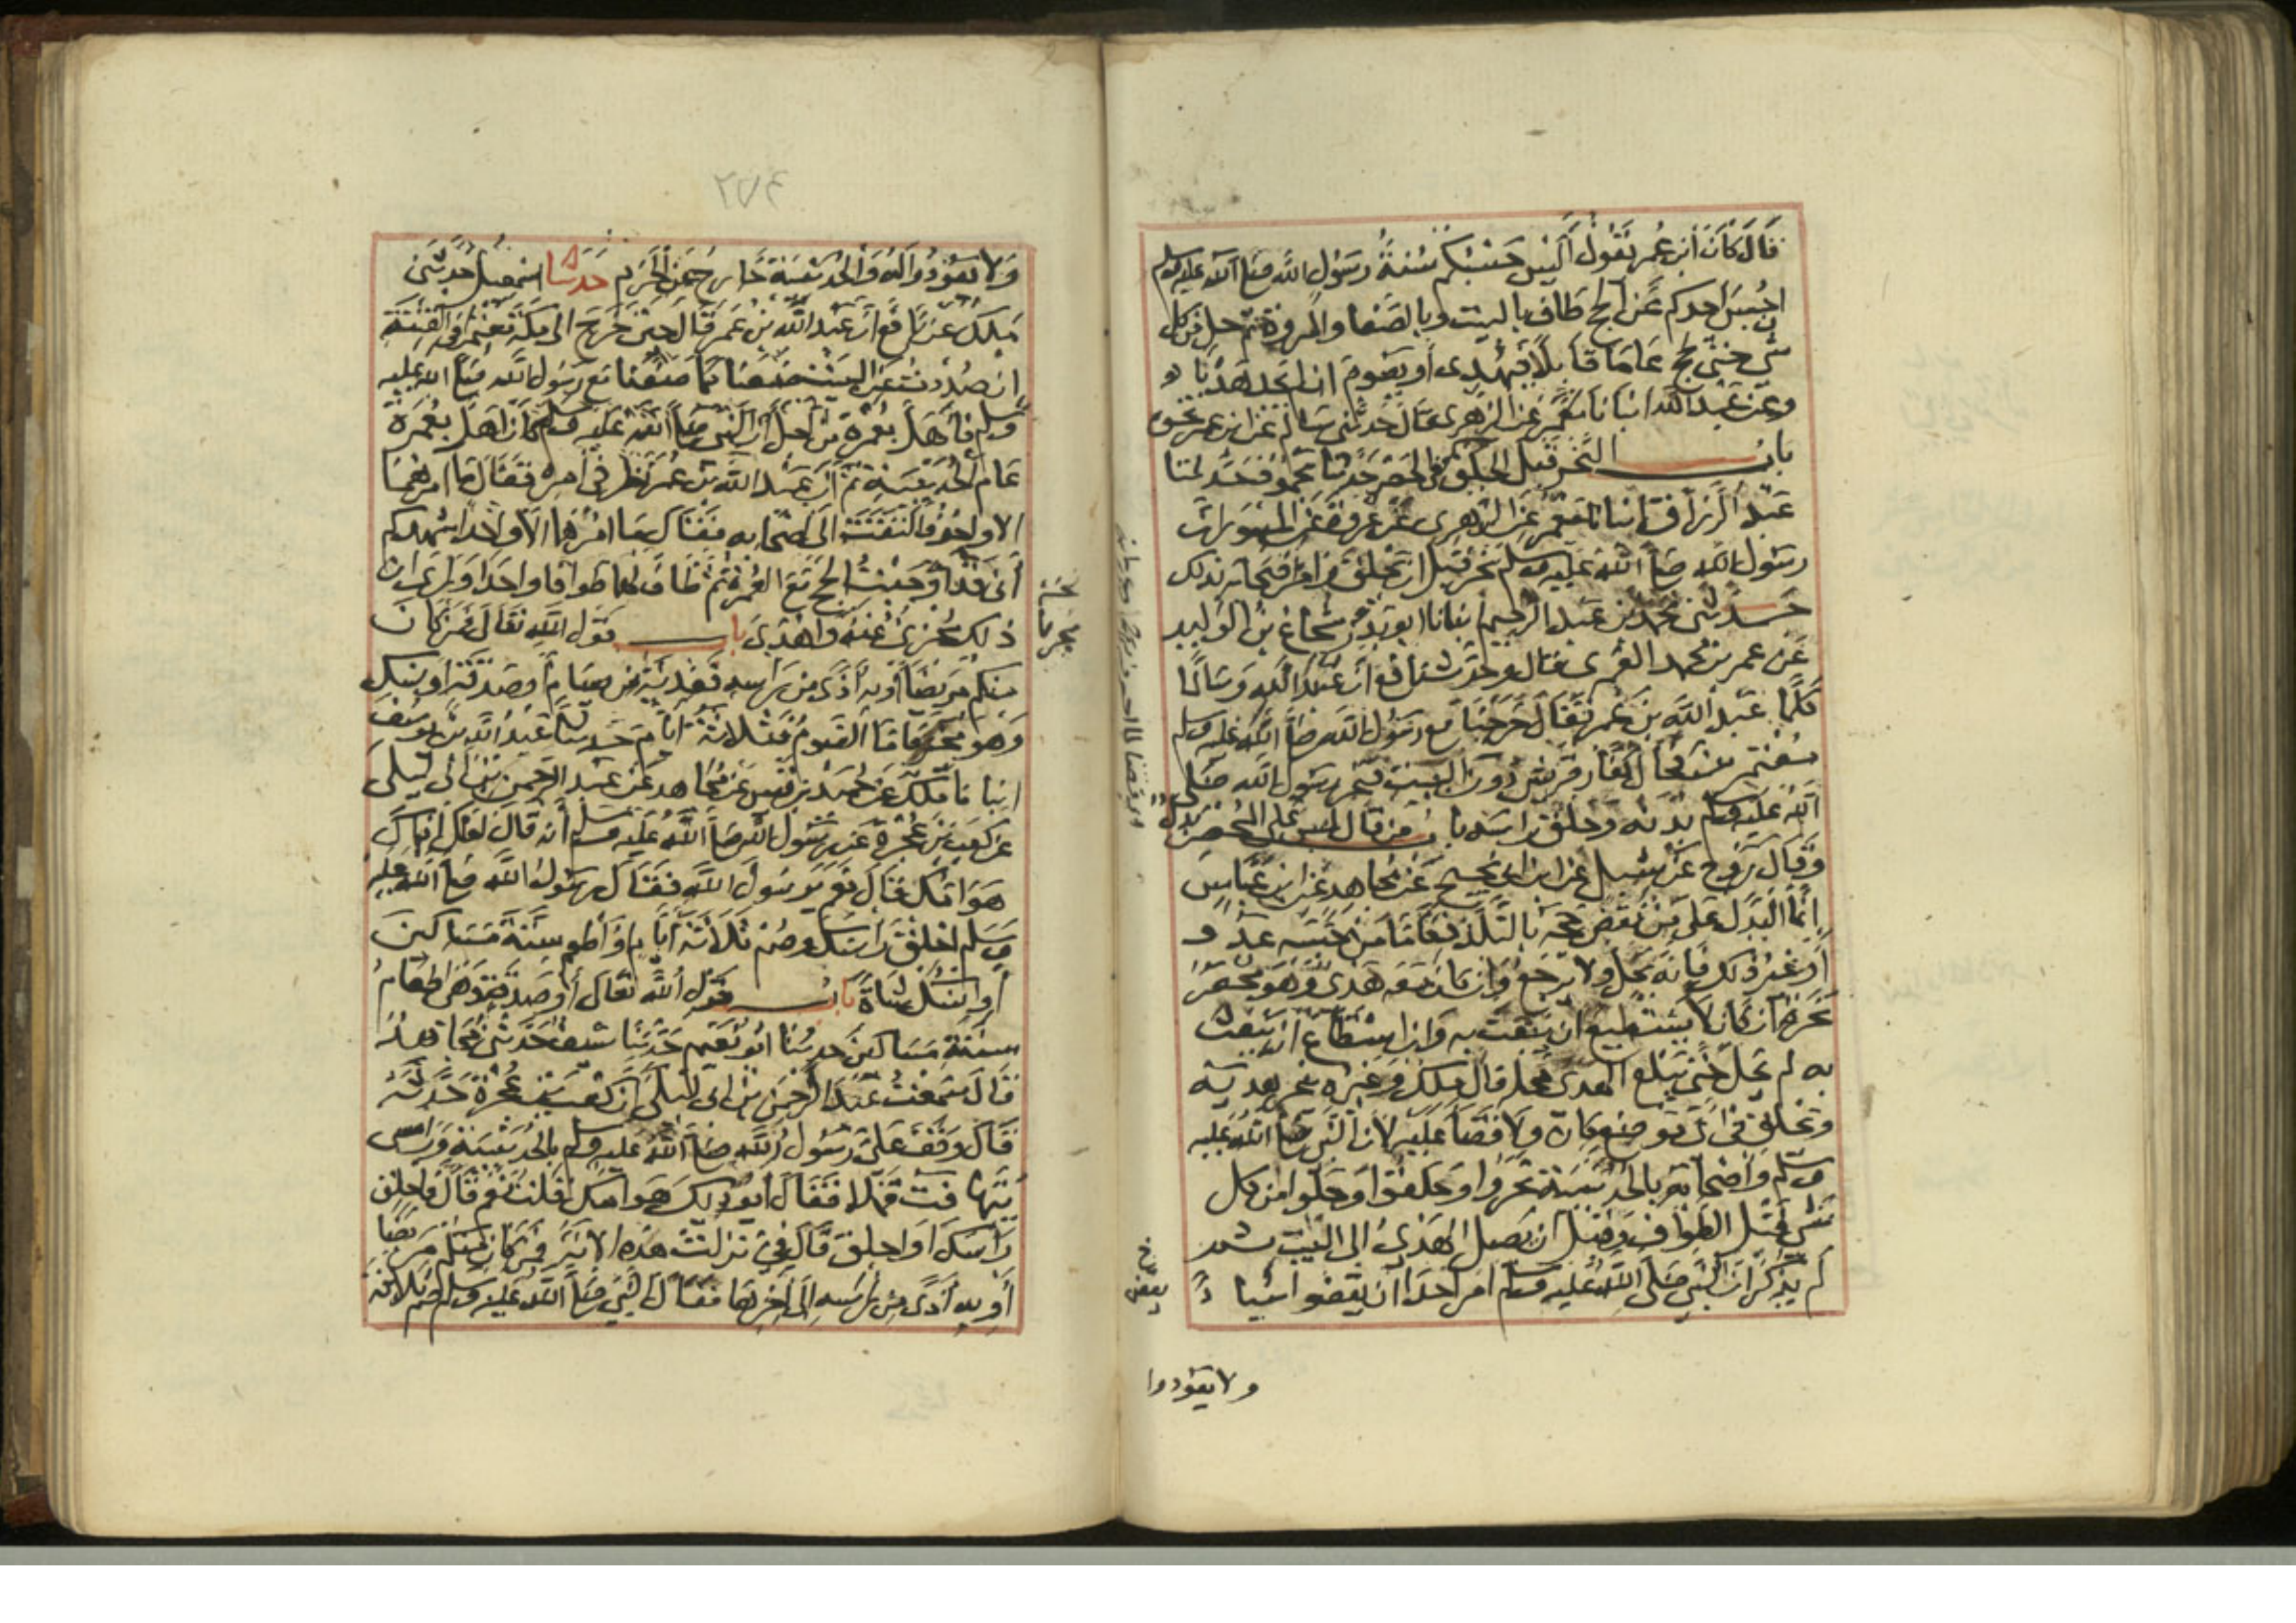 قَالَ كَانَ ابن عُمر يَقُول أَلَيْسَ حَسْبُكم سُنَةُ رَسُول اللَّه صَلى اللَّه عليه وسلم
ان حُبِسَ احدكم عَن الحج طَاف بالبيت وبالصَفا والمروة ثم حل من كل
شي حتى يحج عَامَا قابلًا فيُهدى أو يَصُومَ ان لم يَجد هَدْيًا
وعن عَبْد اللَّه انبانا مَعْمَر عن الزهرى قال حَدثنى سَالم عن ابن عمر نحوه
بابُ النَّحْر قَبْل الحلق فى الحَصْر حَدثنا محمود حَدثنا
عَبْد الرزاق انبانا مَعْمر عَن الزهرى عَن عروة عن المسور ان
رسُول اللَّه صَلى اللَّه عليه وسلم نحَر قَبْل ان يحلق وامر اصحابه بذلك
حَدثنى محمد بن عَبد الرحيم انبانا ابو بَدر شجاع بن الوليد
عَن عمر بن محمد العُمرى قال وحَدث نافع ان عَبْد اللَّه وسَالمًا
كلَّمَا عَبْد اللَّه بن عُمر فقال خرجنا مع رَسُول اللَّه صَلى اللَّه عليه وسلم
معْتمرين فحال كُفار قريش دون البيت فنحر رسول اللَّه صَلى
اللَّه عليه وسلم بدنه وحَلق راسَه بابُ من قال ليسَ على المُحصر بَدَل
وقال رَوح عن شبل عن ابن ابى نجيح عَن مجاهد عَن ابن عَبَّاس
إنَّما البَدَل على مَن نقض حجه بالتَّلذذ فامَّا مَن حَبَسه عذر
أو غيرُ ذلك فإنه يَحل ولا يرجع وَان كان معَه هَدى وهو مُحصَر
نَحَرَه ان كان لا يَسْتطيع ان يَبْعَث به وَان اسْتطاع ان يَبْعَث
به لم يحل حَتَّى يَبْلغ الهَدى مَحِله وقال مٰلك وغيره ينحر هديه
ويحلق فى اىّ موضع كان ولا قضَا عَليه لان النَّبى صلى اللَّه عليه
وسلم وأصْحابه بالحديبية نحَروا وحَلقوا وحلّوا من كل
شى قَبْل الطواف وقَبْل ان يَصل الهَدى الى البَيت ثم
لم يُذكر ان النَّبىَّ صَلى اللَّه عليه وسلم امر احَدا ان يقضوا شيا
يقضى
ولا يعودوا
ولا يعودوا لهُ والحديبية خارجُ مَن الحَرم حَدثنا اسمٰعيل حَدثنى
مٰلك عن نافع ان عَبْد اللَّه بن عمر قال حين خرج الى مكة مُعْتمرًا فى الفتنة
إن صُددت عن البيت صنعنا كما صنعْنا مع رسُول اللَّه صَلى اللَّه عليه
وسلم فأهَل بعُمرة من اجل ان النبى صَلى اللَّه عليه وسلم كان اهَل بعُمرة
عَام الحُديبية ثم ان عَبْد اللَّه بن عُمر نظر فى امره فقال ما امرهمَا
الا واحد فالتفت الى اصْحابه فقال ما امرهما الا واحد اشهدكم
أنى قد أوجبْتُ الحج مَع العُمرة ثم طافَ لهما طوافا واحدا وراى ان
ذلك مُجزىً عنه وأهْدى بابُ قول اللَّه تعَالى فمن كان
مِنكم مريضًا أو به أذًى من راسه فَفِدية من صِيام أو صدقة او نسك
وهو مُخير فاما الصَوْمُ فثلاثة ايام حَدثنا عَبْدُ اللَّه بن يُوسف
انبانا مٰلك عن حُمَيد بن قيس عَن مجاهد عن عبْد الرحمن بن ابى ليلى
عن كعب بن عُجْرة عَن رَسُول اللَّه صَلى اللَّه عليه وسلم أنه قال لعلك اٰذاك
هَوامّك قال نعم يٰرسُول اللَّه فقال رسُولُ اللَّه صَلى اللَّه عليه
وسلم احْلق رأسَك وصُم ثلاثة أيام أو أطعم ستَّة مسَاكين
أو انسُك بشاة بابُ قول اللَّه تعَالى أو صدقة وهى اطعامُ
ستة مسَاكين حدثنا ابو نعيم حدثنا سَيف حَدثنى مُجاهد
قال سَمعْت عَبْد الرحمن بن ابى ليلى ان كعْبَ بن عُجرة حَدثه
قال وقَف عَلىَّ رسُولُ اللَّه صَلى اللَّه عليه وسلم بالحديبية ورَاسى
يَتهافت قمْلا فقال أيُؤذيك هَوامك قلت نعم قال فاحلق
رَأسَك أو احلق قال فىَّ نزلت هذه الاية فمن كان منكم مريضًا
أو به أذًى من رأسه إلى آخِرها فقال النبى صَلى اللَّه عليه وسلم صُم ثلاثة